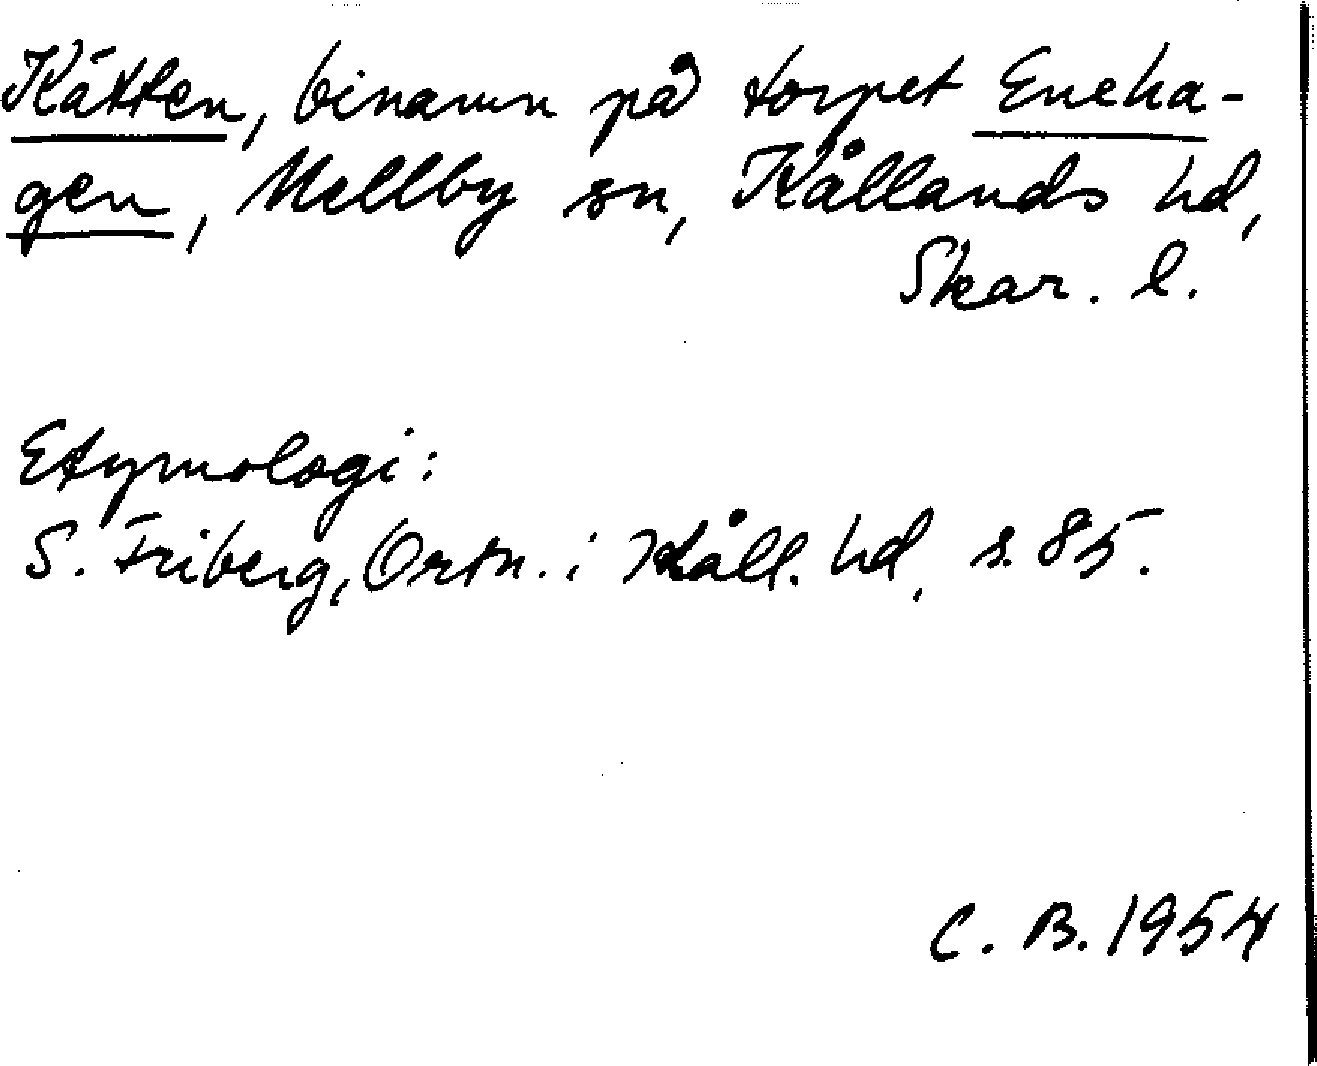 Kätten, binamn på torpet Eneha-
gen, Mellby sn, Kållands hd,
Skar. l.
Etymologi:
S. Friberg, Ortn. i Kåll. hd, s. 85.
C. B. 1954